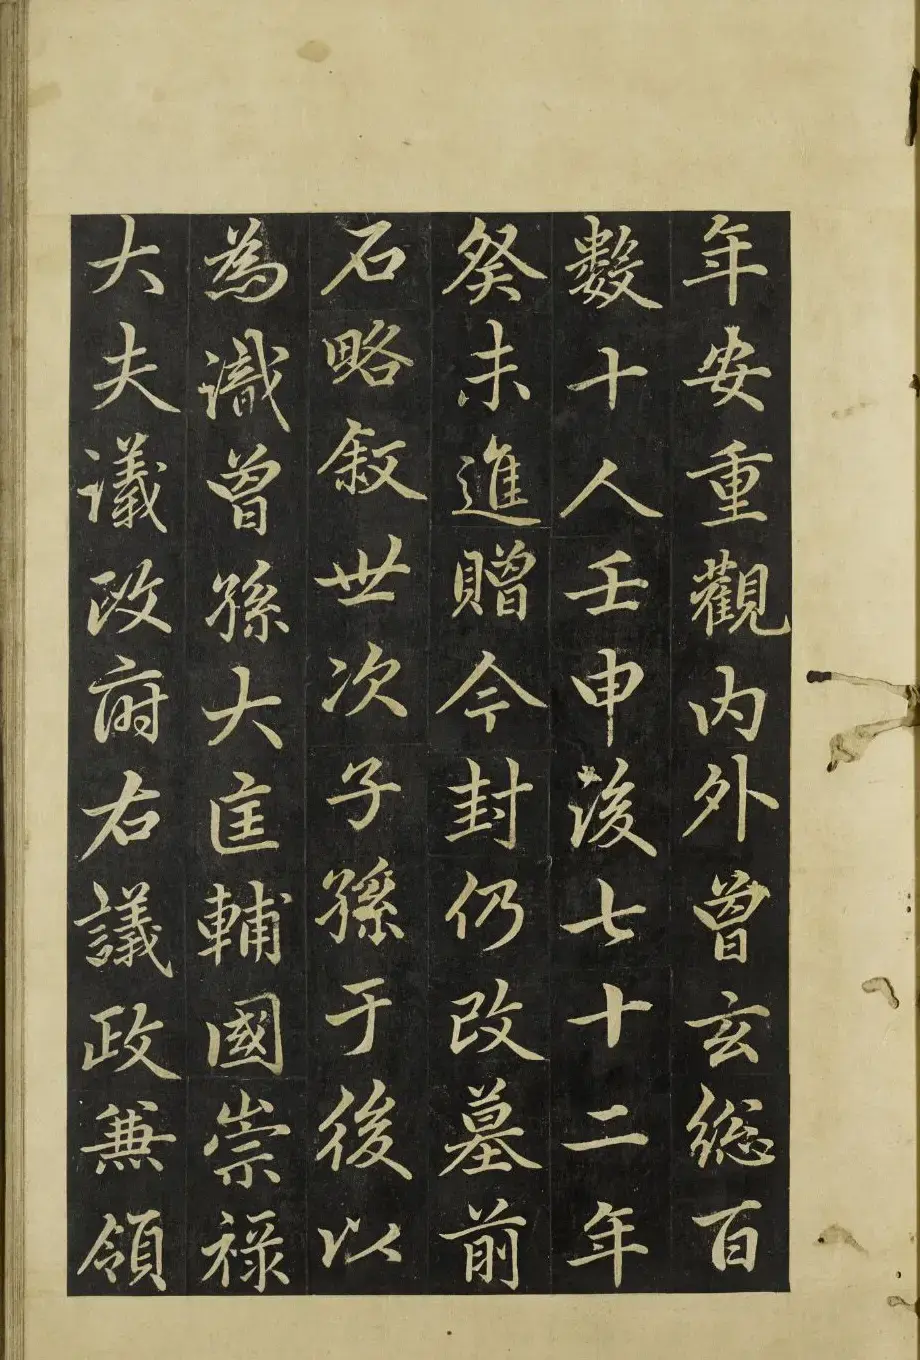 年安重觀內外曾玄總百
數十人壬申後七十二年
癸未進贈今封仍改墓前
石略敘世次子孫于後以
為識曾孫大匡輔國崇祿
大夫議政府右議政兼領